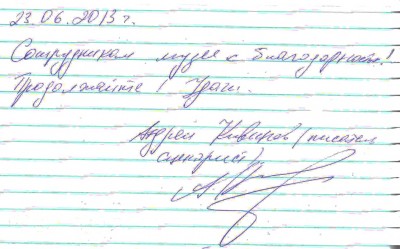 23.06.2013 г.
Сотрудникам музея с благодарностью!
Продолжайте! Удачи.
Андрей (писатель
сценарист)